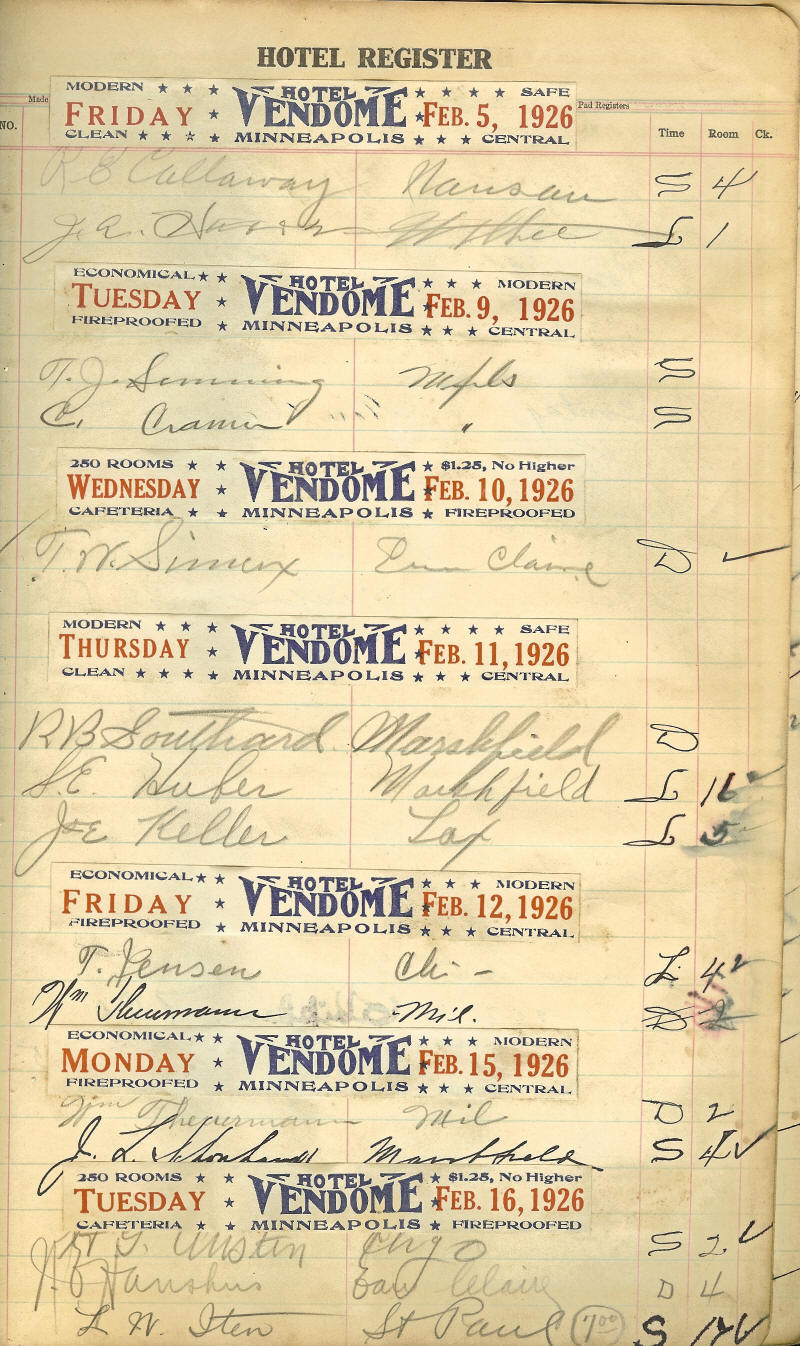 HOTEL REGISTER
Made Pad Registers
NO. Time Room Ck.
MODERN ★ ★ ★ HOTEL ★ ★ ★ ★ SAFE
FRIDAY ★ VENDOME ★ FEB. 5, 1926
CLEAN ★ ★ ★ ★ MINNEAPOLIS ★ ★ ★ CENTRAL
R E Callaway S 4
J. A. Withee L 1
ECONOMICAL ★ ★ HOTEL ★ ★ ★ MODERN
TUESDAY ★ VENDOME ★ FEB. 9, 1926
FIREPROOFED ★ MINNEAPOLIS ★ ★ ★ CENTRAL
T. J. Simming Mpls S
C. Cramer " S
250 ROOMS ★ ★ HOTEL ★ $1.25, No Higher
WEDNESDAY ★ VENDOME ★ FEB. 10, 1926
CAFETERIA ★ ★ MINNEAPOLIS ★ FIREPROOFED
T. W. Eau Claire D ✓
MODERN ★ ★ ★ HOTEL ★ ★ ★ ★ SAFE
THURSDAY ★ VENDOME ★ FEB. 11, 1926
CLEAN ★ ★ ★ ★ MINNEAPOLIS ★ ★ ★ CENTRAL
R B Southard Marshfield D
S. E. Huber Marshfield L 16
Joe Keller Lax L 5
ECONOMICAL ★ ★ HOTEL ★ ★ ★ MODERN
FRIDAY ★ VENDOME ★ FEB. 12, 1926
FIREPROOFED ★ MINNEAPOLIS ★ ★ ★ CENTRAL
T. Jensen Chi - L 4 2
Wm Theurmann Mil. D 2
ECONOMICAL ★ ★ HOTEL ★ ★ ★ MODERN
MONDAY ★ VENDOME ★ FEB. 15, 1926
FIREPROOFED ★ MINNEAPOLIS ★ ★ ★ CENTRAL
Wm Theuermann Mil D 2
J. L. Marshfield S 4 ✓
250 ROOMS ★ ★ HOTEL ★ $1.25, No Higher
TUESDAY ★ VENDOME ★ FEB. 16, 1926
CAFETERIA ★ ★ MINNEAPOLIS ★ FIREPROOFED
Austin Chgo S 2 ✓
Hanshus Eau Claire D 4
L. W. Iten St Paul 7.00 S 14 ✓